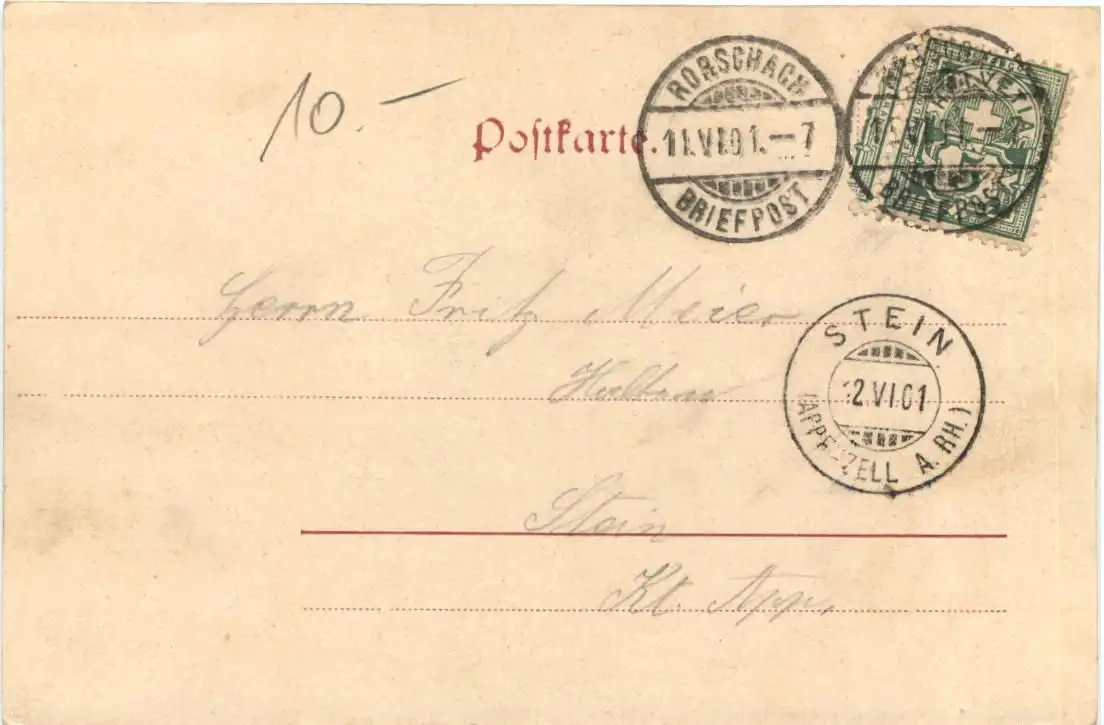 10.—
Postkarte.
RORSCHACH
11.VI.01.–7
BRIEFPOST
HELVETIA
BRIEFPOST
Herrn Fritz Meier
STEIN
12.VI.01
(APPENZELL A.RH.)
Stein
Kt. App.